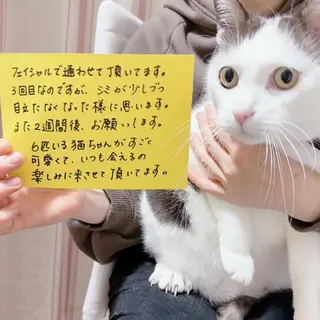 フェイシャルで通わせて頂いてます。
3回目なのですが、シミが少しづつ
目立たなくなった様に思います。
また2週間後、お願いします。
6匹いる猫ちゃんがすごく
可愛くて、いつも会えるの
楽しみに来させて頂いてます。